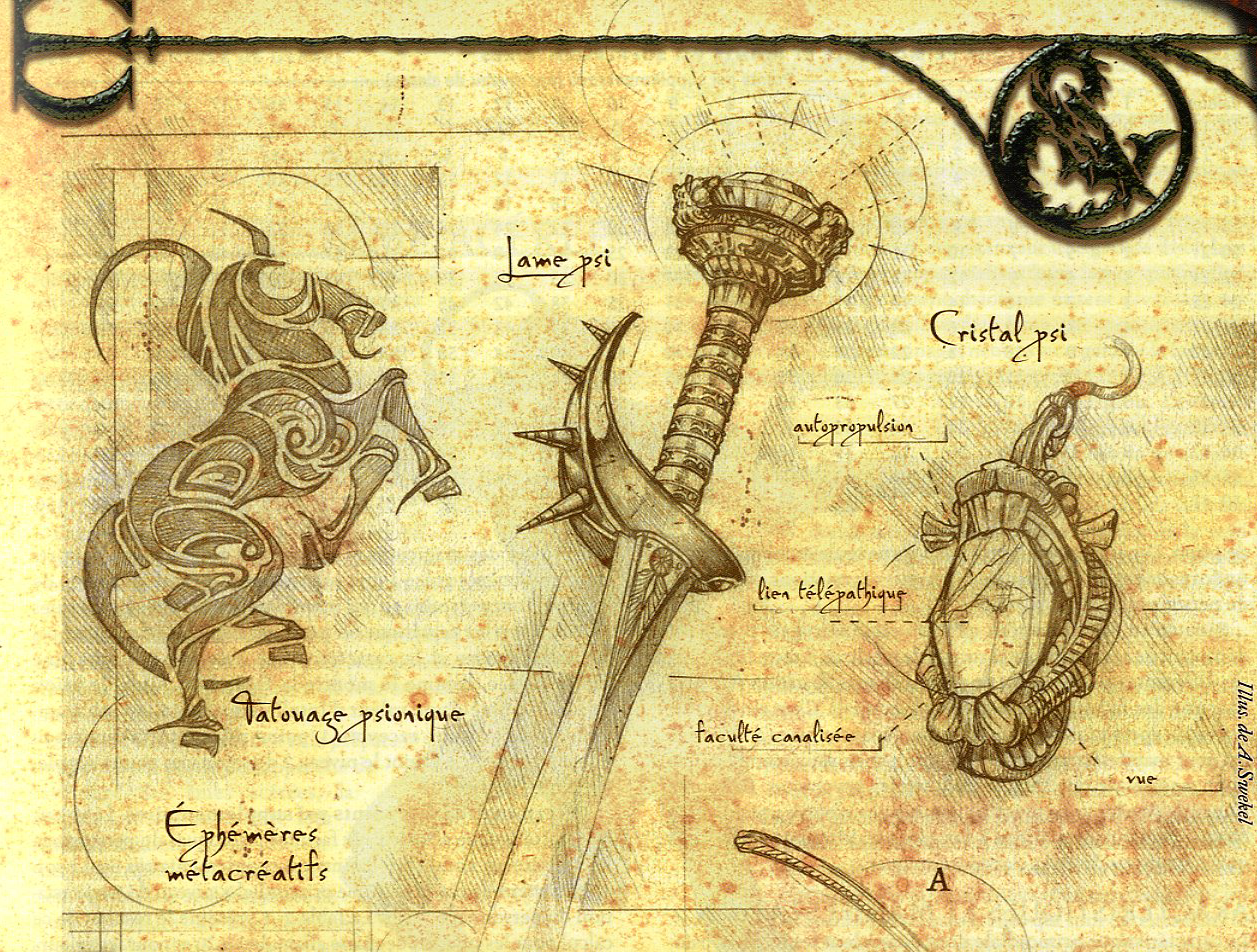 Lame psi
Cristal psi
autopropulsion
lien télépathique
Tatouage psionique
faculté canalisée
vue
Éphémères
métacréatifs
A
Illus. de A. Swekel